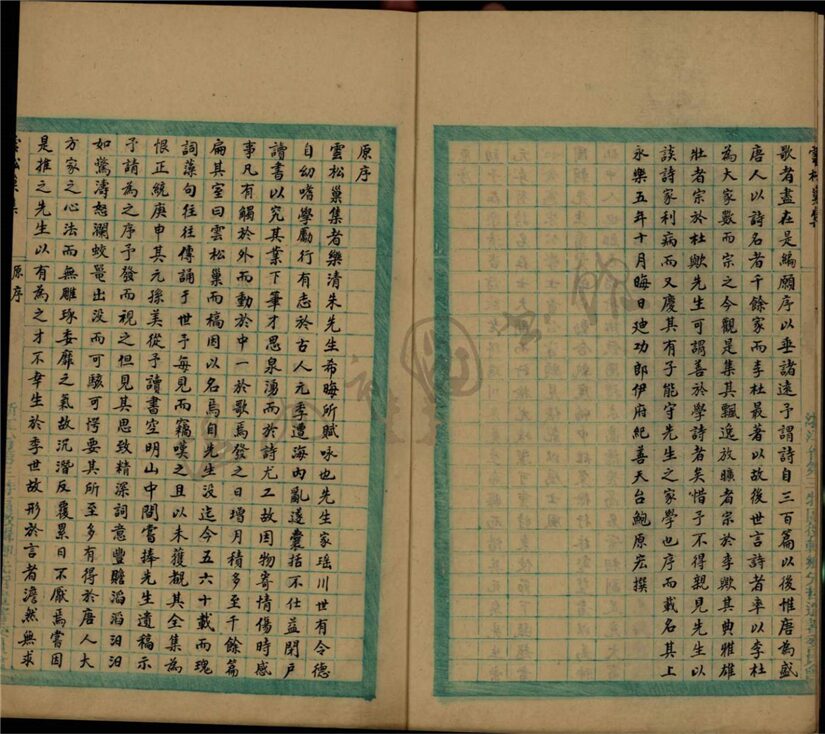 歌者盡在是編願序以垂諸遠予謂詩自三百篇以後惟唐為盛
唐人以詩名者千餘家而李杜最著以故後世言詩者率以李杜
為大家數而宗之今觀是集其飄逸放曠者宗於李歟其典雅雄
壯者宗於杜歟先生可謂善於學詩者矣惜予不得親見先生以
談詩家利病而又慶其有子能守先生之家學也序而載名其上
永樂五年十月晦日廸功郎伊府紀善天台鮑原宏撰
原序
雲松巢集者樂清朱先生希晦所賦咏也先生家瑶川世有令德
自幼嗜學勵行有志於古人元季遭海內亂遂囊括不仕益閉戶
讀書以究其業下筆才思泉湧而於詩尤工故因物寄情傷時感
事凡有觸於外而動於中一於歌焉發之日增月積多至千餘篇
扁其室曰雲松巢而稿因以名焉自先生没迄今五六十載而瑰
詞藻句往往傳誦于世予每見而竊嘆之且以未獲覩其全集為
恨正統庚申其元孫羙從予讀書空明山中間嘗捧先生遺稿示
予請為之序予發而視之但見其思致精深詞意豐贍滔滔汨汨
如驚濤怒瀾蛟鼉出没而可駭可愕要其所至多有得於唐人大
方家之心法而無雕琢委靡之氣故沉潛反覆累日不厭焉嘗因
是推之先生以有為之才不幸生於季世故形於言者澹然無求
原序